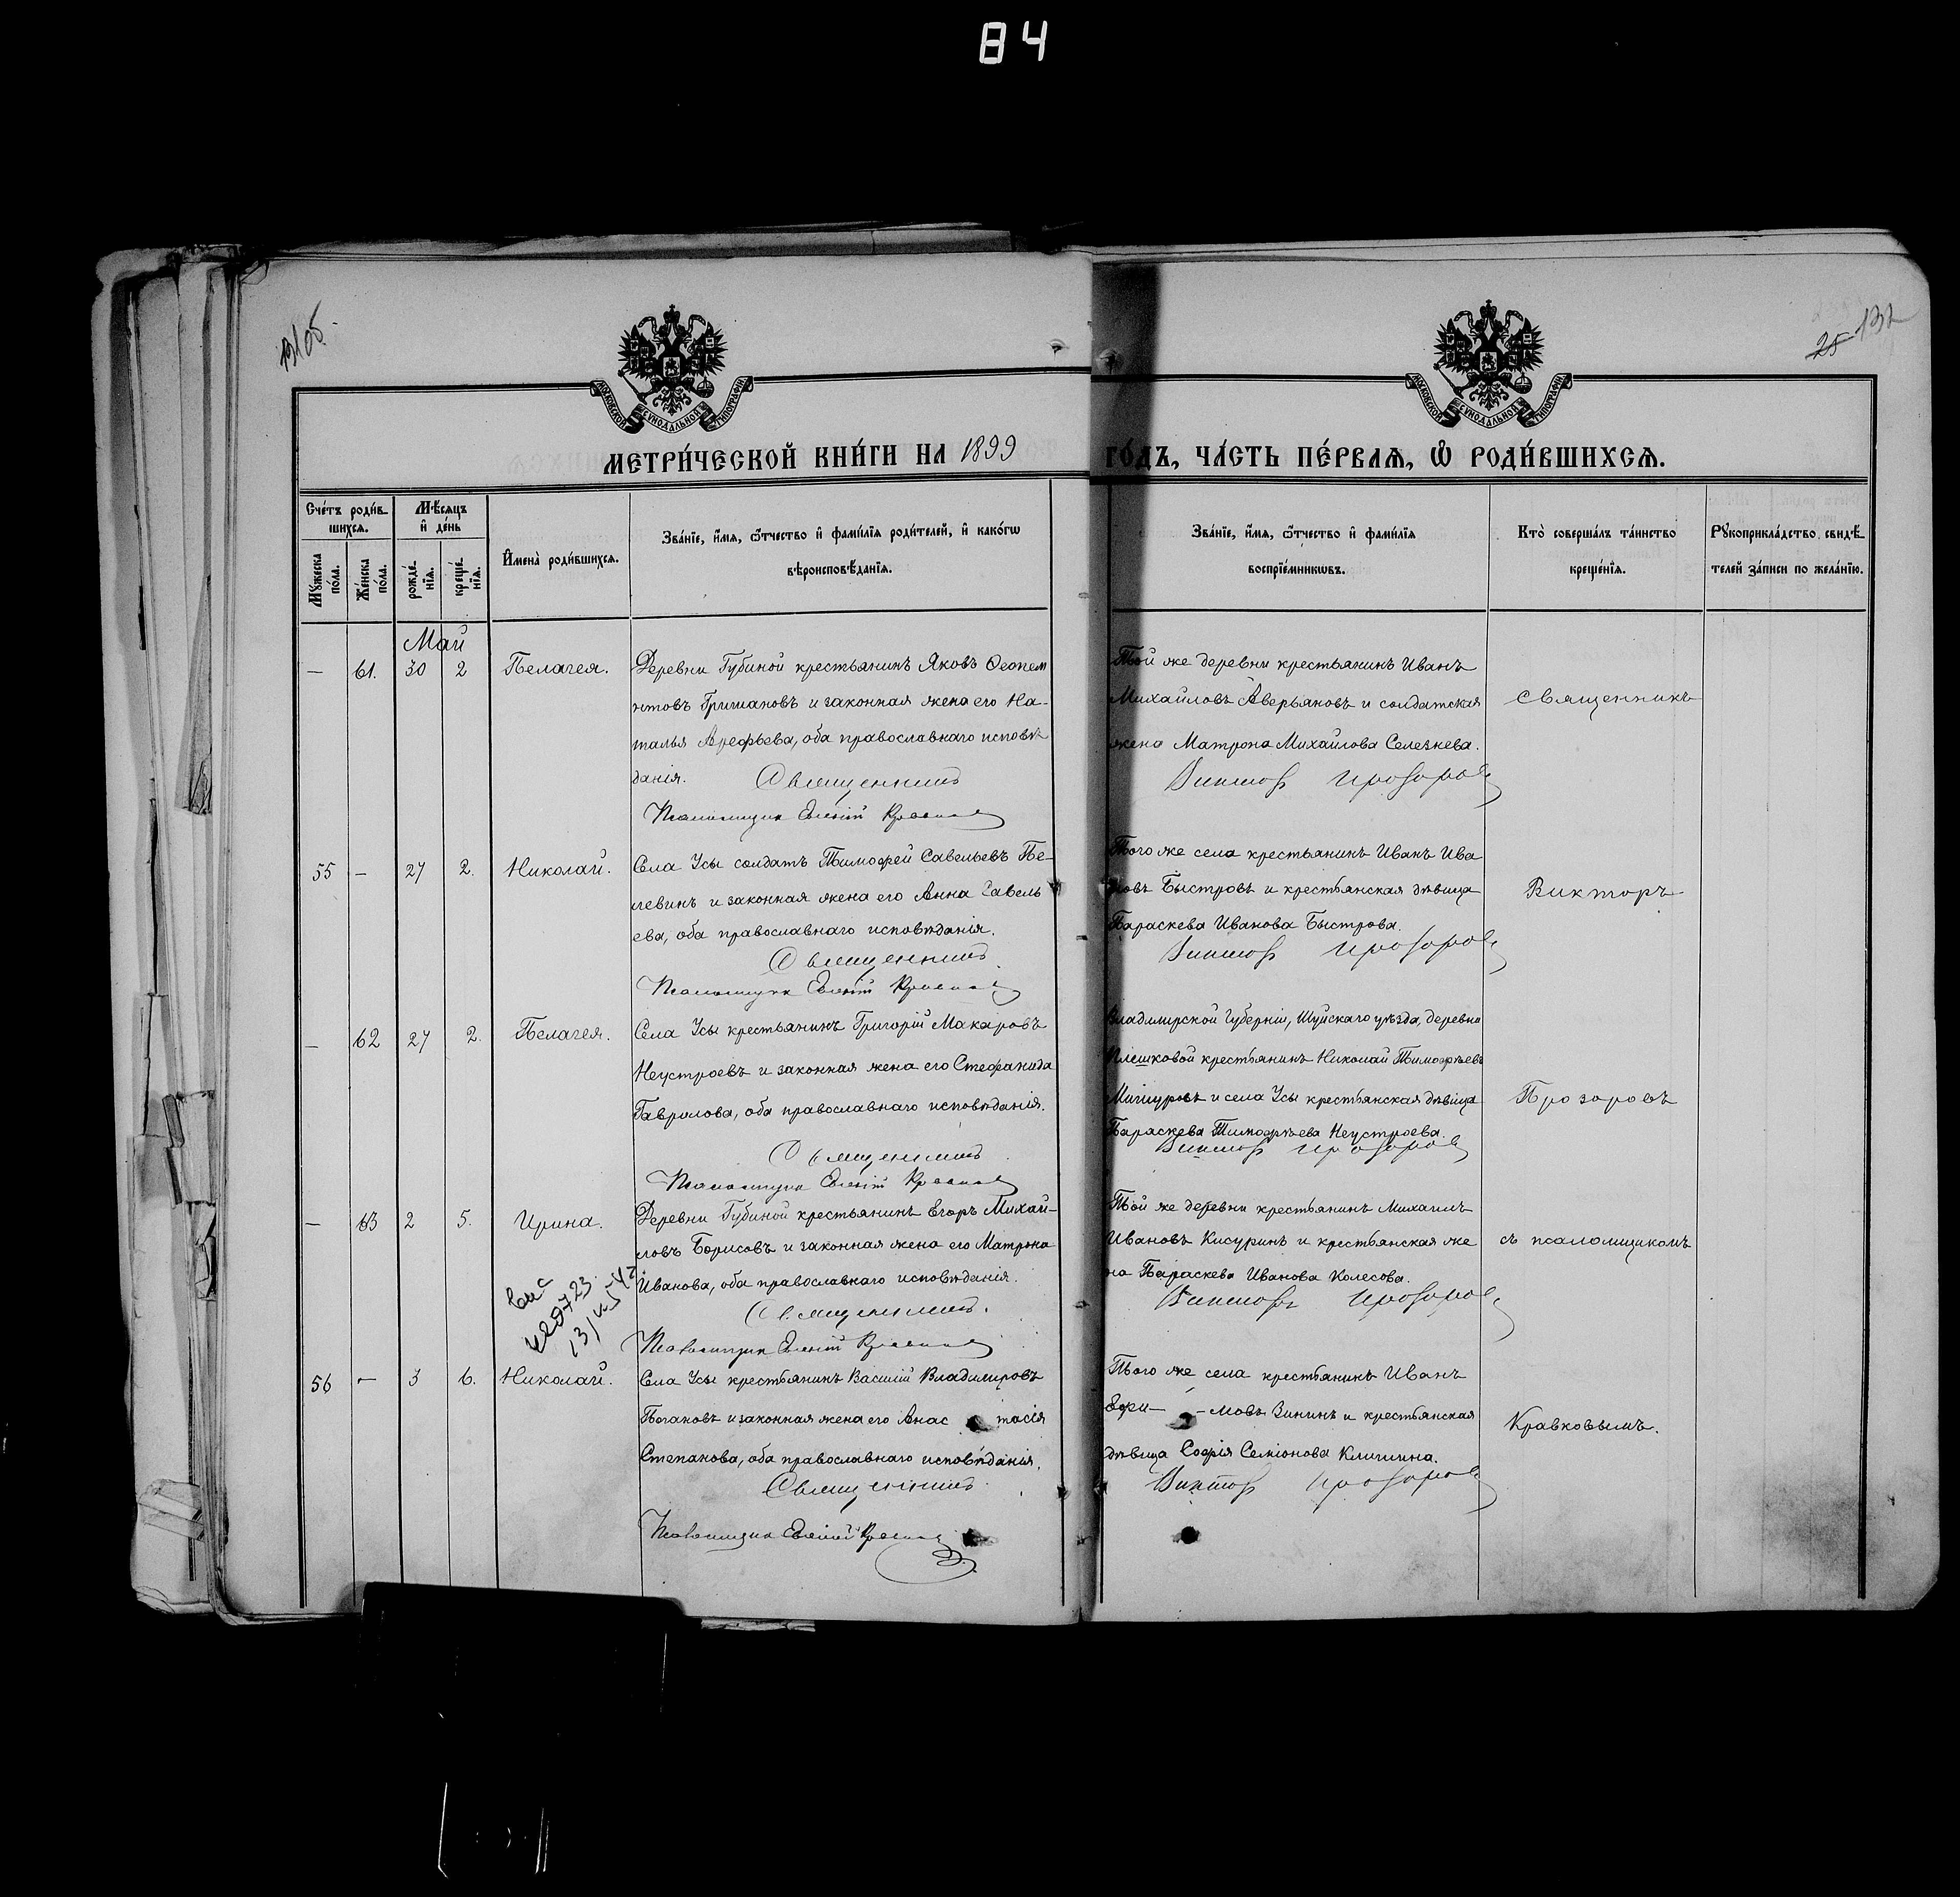 84
131 об.
25 132
МОСКОВСКОЙ СѴНОДАЛЬНОЙ ТИПОГРАФІИ
МОСКОВСКОЙ СѴНОДАЛЬНОЙ ТИПОГРАФІИ
МЕТРИ́ЧЕСКОЙ КНИ́ГИ НА 1899 ГО́ДЪ, ЧА́СТЬ ПЕ́РВАЯ, Ѽ РОДИ́ВШИХСЯ.
Сче́тъ роди́в-
шихся.
Му́жеска по́ла.
Же́нска по́ла.
Мѣ́сяцъ
и҆ де́нь
рожде́-
нїя.
креще́-
нїя.
И҆мена̀ роди́вшихся.
Зва́нїе, и҆́мя, ѻ҆́тчество и҆ фами́лїя роди́телей, и҆ како́гѡ
вѣроисповѣ́данїя.
Зва́нїе, и҆́мя, ѻ҆́тчество и҆ фами́лїя
воспрїе́мникѡвъ.
Кто̀ соверша́лъ та́инство
креще́нїя.
Рꙋкоприкла́дство свидѣ́-
телей за́писи по жела́нїю.
Май
— 61. 30 2 Пелагея.
Деревни Губиной крестьянинъ Яковъ Феопем
птовъ Гришановъ и законная жена его На-
талья Арефьева, оба православнаго исповѣ
данія. Священникъ
Псаломщик Евгеній Кравков
Той же деревни крестьянинъ Иванъ
Михайловъ Аверьяновъ и солдатская
жена Матрона Михайлова Селезнева.
Виктор Прозоров
священникъ
55 — 27 2. Николай.
Села Усы солдатъ Тимофей Савельевъ Пе-
левинъ и законная жена его Анна Савель
ева, оба православнаго исповѣданія.
Священникъ
Псаломщик Евгеній Кравков
Того же села крестьянинъ Иванъ Ива
новъ Быстровъ и крестьянская дѣвица
Параскева Иванова Быстрова.
Виктор Прозоров
Викторъ
— 62 27 2. Пелагея.
Села Усы крестьянинъ Григорій Макаровъ
Неустроевъ и законная жена его Стефанида
Гаврилова, оба православнаго исповѣданія.
Священникъ
Псаломщик Евгеній Кравков
Владимирской Губерніи, Шуйскаго уѣзда, деревни
Плешковой крестьянинъ Николай Тимофѣевъ
и села Усы крестьянская дѣвица
Параскева Тимофѣева Неустроева.
Виктор Прозоров
Прозоровъ
— 63 2 5. Ирина.
Деревни Губиной крестьянинъ Егоръ Михай-
ловъ Борисовъ и законная жена его Матрона
Иванова, оба православнаго исповѣданія.
Священникъ.
Псаломщик Евгеній Кравков
Той же деревни крестьянинъ Михаилъ
Ивановъ Кисуринъ и крестьянская же
на Параскева Иванова Колесова.
Викторъ Прозоров
съ псаломщикомъ
56 — 3 6. Николай.
Села Усы крестьянинъ Василій Владимировъ
Погановъ и законная жена его Анас тасія
Степанова, оба православнаго исповѣданія.
Священникъ
Псаломщик Евгеній Кравков
Того же села крестьянинъ Иванъ
Ефи- -мовъ Зининъ и крестьянская
дѣвица Софія Семіонова Кличина.
Виктор Прозоров
Кравковымъ.